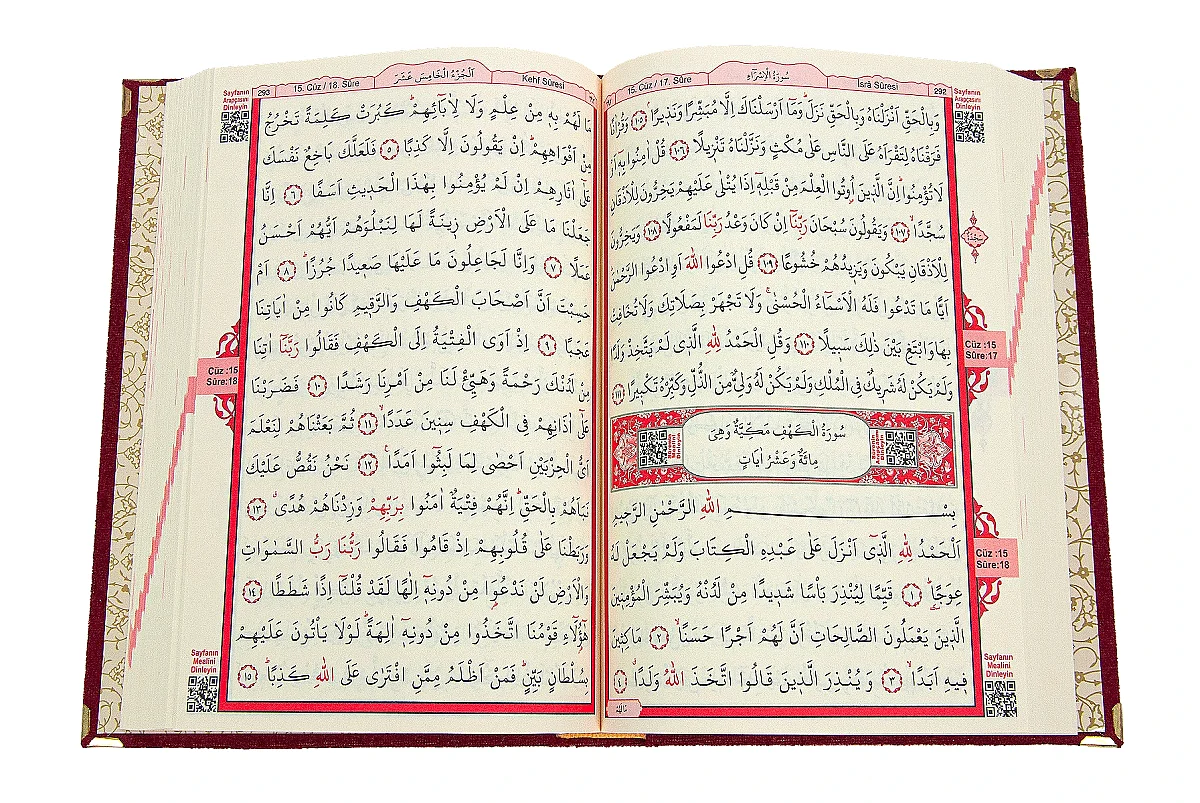 Sayfanın Arapçasını Dinleyin
292
İsrâ Sûresi
سُورَةُ الْإِسْرَاءِ
15. Cüz / 17. Sûre
وَبِالْحَقِّ اَنْزَلْنَاهُ وَبِالْحَقِّ نَزَلَۜ وَمَٓا اَرْسَلْنَاكَ اِلَّا مُبَشِّرًا وَنَذِيرًاۢ ﴿١٠٥﴾ وَقُرْاٰنًا
فَرَقْنَاهُ لِتَقْرَاَهُ عَلَى النَّاسِ عَلٰى مُكْثٍ وَنَزَّلْنَاهُ تَنْزِيلًا ﴿١٠٦﴾ قُلْ اٰمِنُوا بِهٖٓ اَوْ
لَا تُؤْمِنُواۜ اِنَّ الَّذِينَ اُو۫تُوا الْعِلْمَ مِنْ قَبْلِهٖٓ اِذَا يُتْلٰى عَلَيْهِمْ يَخِرُّونَ لِلْاَذْقَانِ
سُجَّدًاۙ ﴿١٠٧﴾ وَيَقُولُونَ سُبْحَانَ رَبِّنَٓا اِنْ كَانَ وَعْدُ رَبِّنَا لَمَفْعُولًا ﴿١٠٨﴾ وَيَخِرُّونَ
لِلْاَذْقَانِ يَبْكُونَ وَيَزِيدُهُمْ خُشُوعًا ﴿١٠٩﴾ قُلِ ادْعُوا اللّٰهَ اَوِ ادْعُوا الرَّحْمٰنَۜ
اَيًّا مَا تَدْعُوا فَلَهُ الْاَسْمَٓاءُ الْحُسْنٰىۚ وَلَا تَجْهَرْ بِصَلَاتِكَ وَلَا تُخَافِتْ
بِهَا وَابْتَغِ بَيْنَ ذٰلِكَ سَبِيلًا ﴿١١٠﴾ وَقُلِ الْحَمْدُ لِلّٰهِ الَّذِي لَمْ يَتَّخِذْ وَلَدًا
وَلَمْ يَكُنْ لَهُ شَرِيكٌ فِي الْمُلْكِ وَلَمْ يَكُنْ لَهُ وَلِيٌّ مِنَ الذُّلِّ وَكَبِّرْهُ تَكْبِيرًا ﴿١١١﴾
سُورَةُ الْكَهْفِ مَكِّيَّةٌ وَهِيَ
مِائَةٌ وَعَشْرُ اٰيَاتٍ
بِسْمِ اللّٰهِ الرَّحْمٰنِ الرَّحِيمِ
اَلْحَمْدُ لِلّٰهِ الَّذِٓي اَنْزَلَ عَلٰى عَبْدِهِ الْكِتَابَ وَلَمْ يَجْعَلْ لَهُ
عِوَجًاۜ ﴿١﴾ قَيِّمًا لِيُنْذِرَ بَاْسًا شَدِيدًا مِنْ لَدُنْهُ وَيُبَشِّرَ الْمُؤْمِنِينَ
الَّذِينَ يَعْمَلُونَ الصَّالِحَاتِ اَنَّ لَهُمْ اَجْرًا حَسَنًاۙ ﴿٢﴾ مَاكِثِينَ
فِيهِ اَبَدًاۙ ﴿٣﴾ وَيُنْذِرَ الَّذِينَ قَالُوا اتَّخَذَ اللّٰهُ وَلَدًاۗ ﴿٤﴾
مَالَهُمْ
Cüz :15
Sûre:17
Cüz :15
Sûre:18
Sayfanın Mealini Dinleyin
Sayfanın Arapçasını Dinleyin
293
15. Cüz / 18. Sûre
اَلْجُزْءُ الْخَامِسَ عَشَرَ
Kehf Sûresi
مَا لَهُمْ بِهٖ مِنْ عِلْمٍ وَلَا لِاٰبَٓائِهِمْۜ كَبُرَتْ كَلِمَةً تَخْرُجُ
مِنْ اَفْوَاهِهِمْۜ اِنْ يَقُولُونَ اِلَّا كَذِبًا ﴿٥﴾ فَلَعَلَّكَ بَاخِعٌ نَفْسَكَ
عَلٰٓى اٰثَارِهِمْ اِنْ لَمْ يُؤْمِنُوا بِهٰذَا الْحَدِيثِ اَسَفًا ﴿٦﴾ اِنَّا
جَعَلْنَا مَا عَلَى الْاَرْضِ زِينَةً لَهَا لِنَبْلُوَهُمْ اَيُّهُمْ اَحْسَنُ
عَمَلًا ﴿٧﴾ وَاِنَّا لَجَاعِلُونَ مَا عَلَيْهَا صَعِيدًا جُرُزًاۜ ﴿٨﴾ اَمْ
حَسِبْتَ اَنَّ اَصْحَابَ الْكَهْفِ وَالرَّقِيمِ كَانُوا مِنْ اٰيَاتِنَا
عَجَبًا ﴿٩﴾ اِذْ اَوَى الْفِتْيَةُ اِلَى الْكَهْفِ فَقَالُوا رَبَّنَٓا اٰتِنَا
مِنْ لَدُنْكَ رَحْمَةً وَهَيِّئْ لَنَا مِنْ اَمْرِنَا رَشَدًا ﴿١٠﴾ فَضَرَبْنَا
عَلٰٓى اٰذَانِهِمْ فِي الْكَهْفِ سِنِينَ عَدَدًاۙ ﴿١١﴾ ثُمَّ بَعَثْنَاهُمْ لِنَعْلَمَ
اَيُّ الْحِزْبَيْنِ اَحْصٰى لِمَا لَبِثُٓوا اَمَدًا۟ ﴿١٢﴾ نَحْنُ نَقُصُّ عَلَيْكَ
نَبَاَهُمْ بِالْحَقِّۜ اِنَّهُمْ فِتْيَةٌ اٰمَنُوا بِرَبِّهِمْ وَزِدْنَاهُمْ هُدًىۗ ﴿١٣﴾
وَرَبَطْنَا عَلٰى قُلُوبِهِمْ اِذْ قَامُوا فَقَالُوا رَبُّنَا رَبُّ السَّمٰوَاتِ
وَالْاَرْضِ لَنْ نَدْعُوَ۬ا مِنْ دُونِهٖٓ اِلٰهًا لَقَدْ قُلْنَٓا اِذًا شَطَطًا ﴿١٤﴾
هٰٓؤُ۬لَٓاءِ قَوْمُنَا اتَّخَذُوا مِنْ دُونِهٖٓ اٰلِهَةًۜ لَوْلَا يَاْتُونَ عَلَيْهِمْ
بِسُلْطَانٍ بَيِّنٍۜ فَمَنْ اَظْلَمُ مِمَّنِ افْتَرٰى عَلَى اللّٰهِ كَذِبًاۜ ﴿١٥﴾
Cüz :15
Sûre:18
Sayfanın Mealini Dinleyin